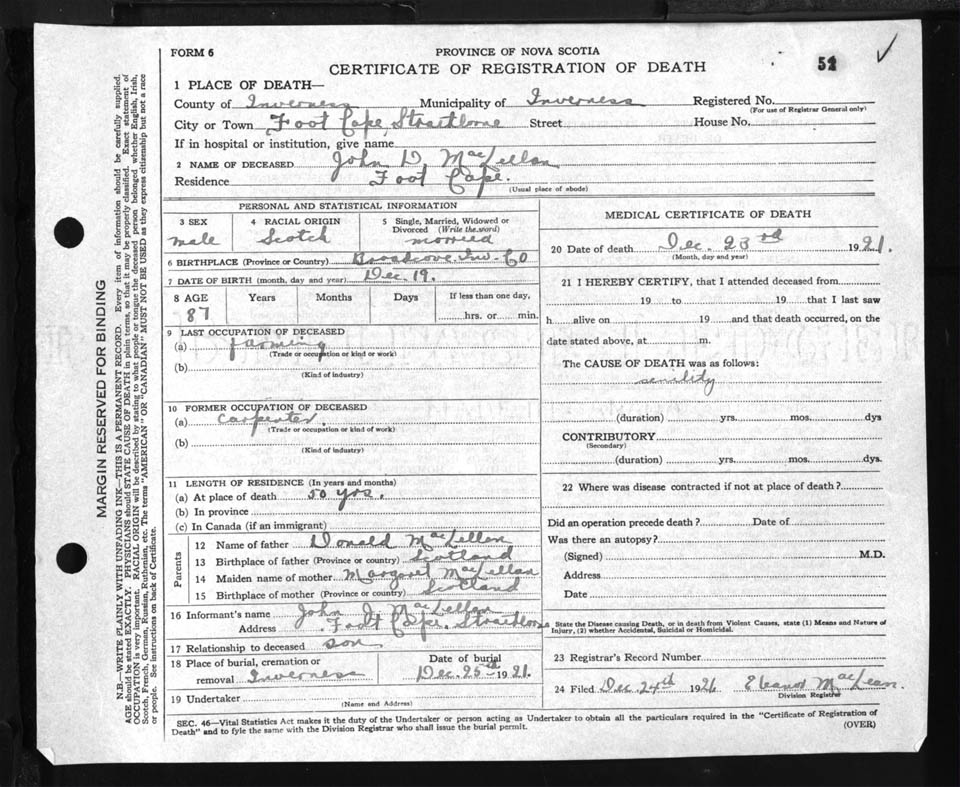 FORM 6
PROVINCE OF NOVA SCOTIA
CERTIFICATE OF REGISTRATION OF DEATH
51
1 PLACE OF DEATH—
County of Inverness Municipality of Inverness Registered No.
(For use of Registrar General only)
City or Town Foot Cape, Strathlorne Street House No.
If in hospital or institution, give name
2 NAME OF DECEASED John D. MacLellan
Residence Foot Cape.
(Usual place of abode)
MARGIN RESERVED FOR BINDING
N.B.—WRITE PLAINLY WITH UNFADING INK—THIS IS A PERMANENT RECORD. Every item of information should be carefully supplied.
AGE should be stated EXACTLY. PHYSICIANS should STATE CAUSE OF DEATH in plain terms, so that it may be properly classified. Exact statement of
OCCUPATION is very important. RACIAL ORIGIN will be described by stating to what people or tongue the deceased person belonged whether English, Irish,
Scotch, French, German, Russian, Ruthenian, etc. The terms "AMERICAN" OR "CANADIAN" MUST NOT BE USED as they express citizenship but not a race
or people. See instructions on back of Certificate.
PERSONAL AND STATISTICAL INFORMATION
3 SEX
male
4 RACIAL ORIGIN
Scotch
5 Single, Married, Widowed or
Divorced (Write the word)
married
6 BIRTHPLACE (Province or Country) Broadcove Inv-Co
7 DATE OF BIRTH (month, day and year) Dec. 19.
8 AGE Years Months Days If less than one day,
87 hrs. or min.
9 LAST OCCUPATION OF DECEASED
(a) farming
(Trade or occupation or kind or work)
(b)
(Kind of industry)
10 FORMER OCCUPATION OF DECEASED
(a) Carpenter.
(Trade or occupation or kind of work)
(b)
(Kind of industry)
11 LENGTH OF RESIDENCE (In years and months)
(a) At place of death 50 yrs.
(b) In province
(c) In Canada (if an immigrant)
Parents
12 Name of father Donald MacLellan
13 Birthplace of father (Province or country) Scotland
14 Maiden name of mother Margaret MacLellan
15 Birthplace of mother (Province or country) Scotland
16 Informant's name John J. MacLellan
Address Foot Cape, Strathlorne
17 Relationship to deceased son
18 Place of burial, cremation or
removal Inverness
Date of burial
Dec. 25th 1921.
19 Undertaker
(Name and Address)
MEDICAL CERTIFICATE OF DEATH
20 Date of death Dec. 23rd 1921.
(Month, day and year)
21 I HEREBY CERTIFY, that I attended deceased from
19 to 19 that I last saw
h alive on 19 and that death occurred, on the
date stated above, at m.
The CAUSE OF DEATH was as follows:
senility
(duration) yrs. mos. dys
CONTRIBUTORY
(Secondary)
(duration) yrs. mos. dys.
22 Where was disease contracted if not at place of death?
Did an operation precede death? Date of
Was there an autopsy?
(Signed) M.D.
Address
Date
State the Disease causing Death, or in death from Violent Causes, state (1) Means and Nature of
Injury, (2) whether Accidental, Suicidal or Homicidal.
23 Registrar's Record Number
24 Filed Dec 24th 1921 Eleanor MacLean.
Division Registrar
SEC. 46—Vital Statistics Act makes it the duty of the Undertaker or person acting as Undertaker to obtain all the particulars required in the "Certificate of Registration of
Death" and to fyle the same with the Division Registrar who shall issue the burial permit.
(OVER)